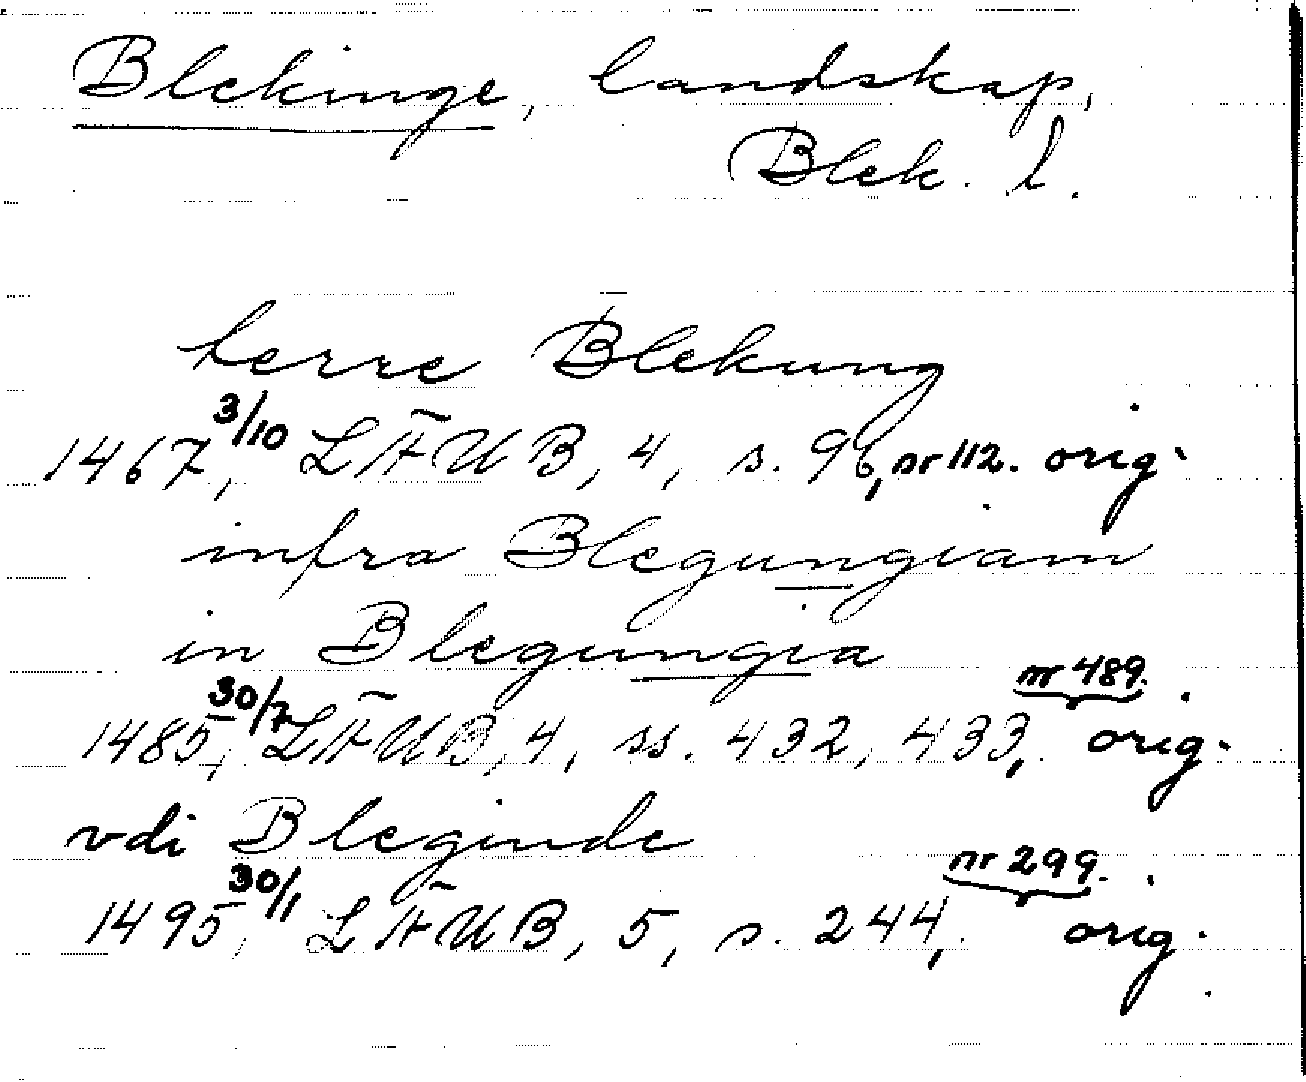 Blekinge, landskap,
Blek. l.
terre Blekung
1467 3/10, LÄUB, 4, s. 96, nr 112. orig.
infra Blegungiam
in Blegungia
1485 30/7, LÄUB, 4, ss. 432, 433, nr 489. orig.
vdi Bleginde
1495 30/1, LÄUB, 5, s. 244, nr 299. orig.